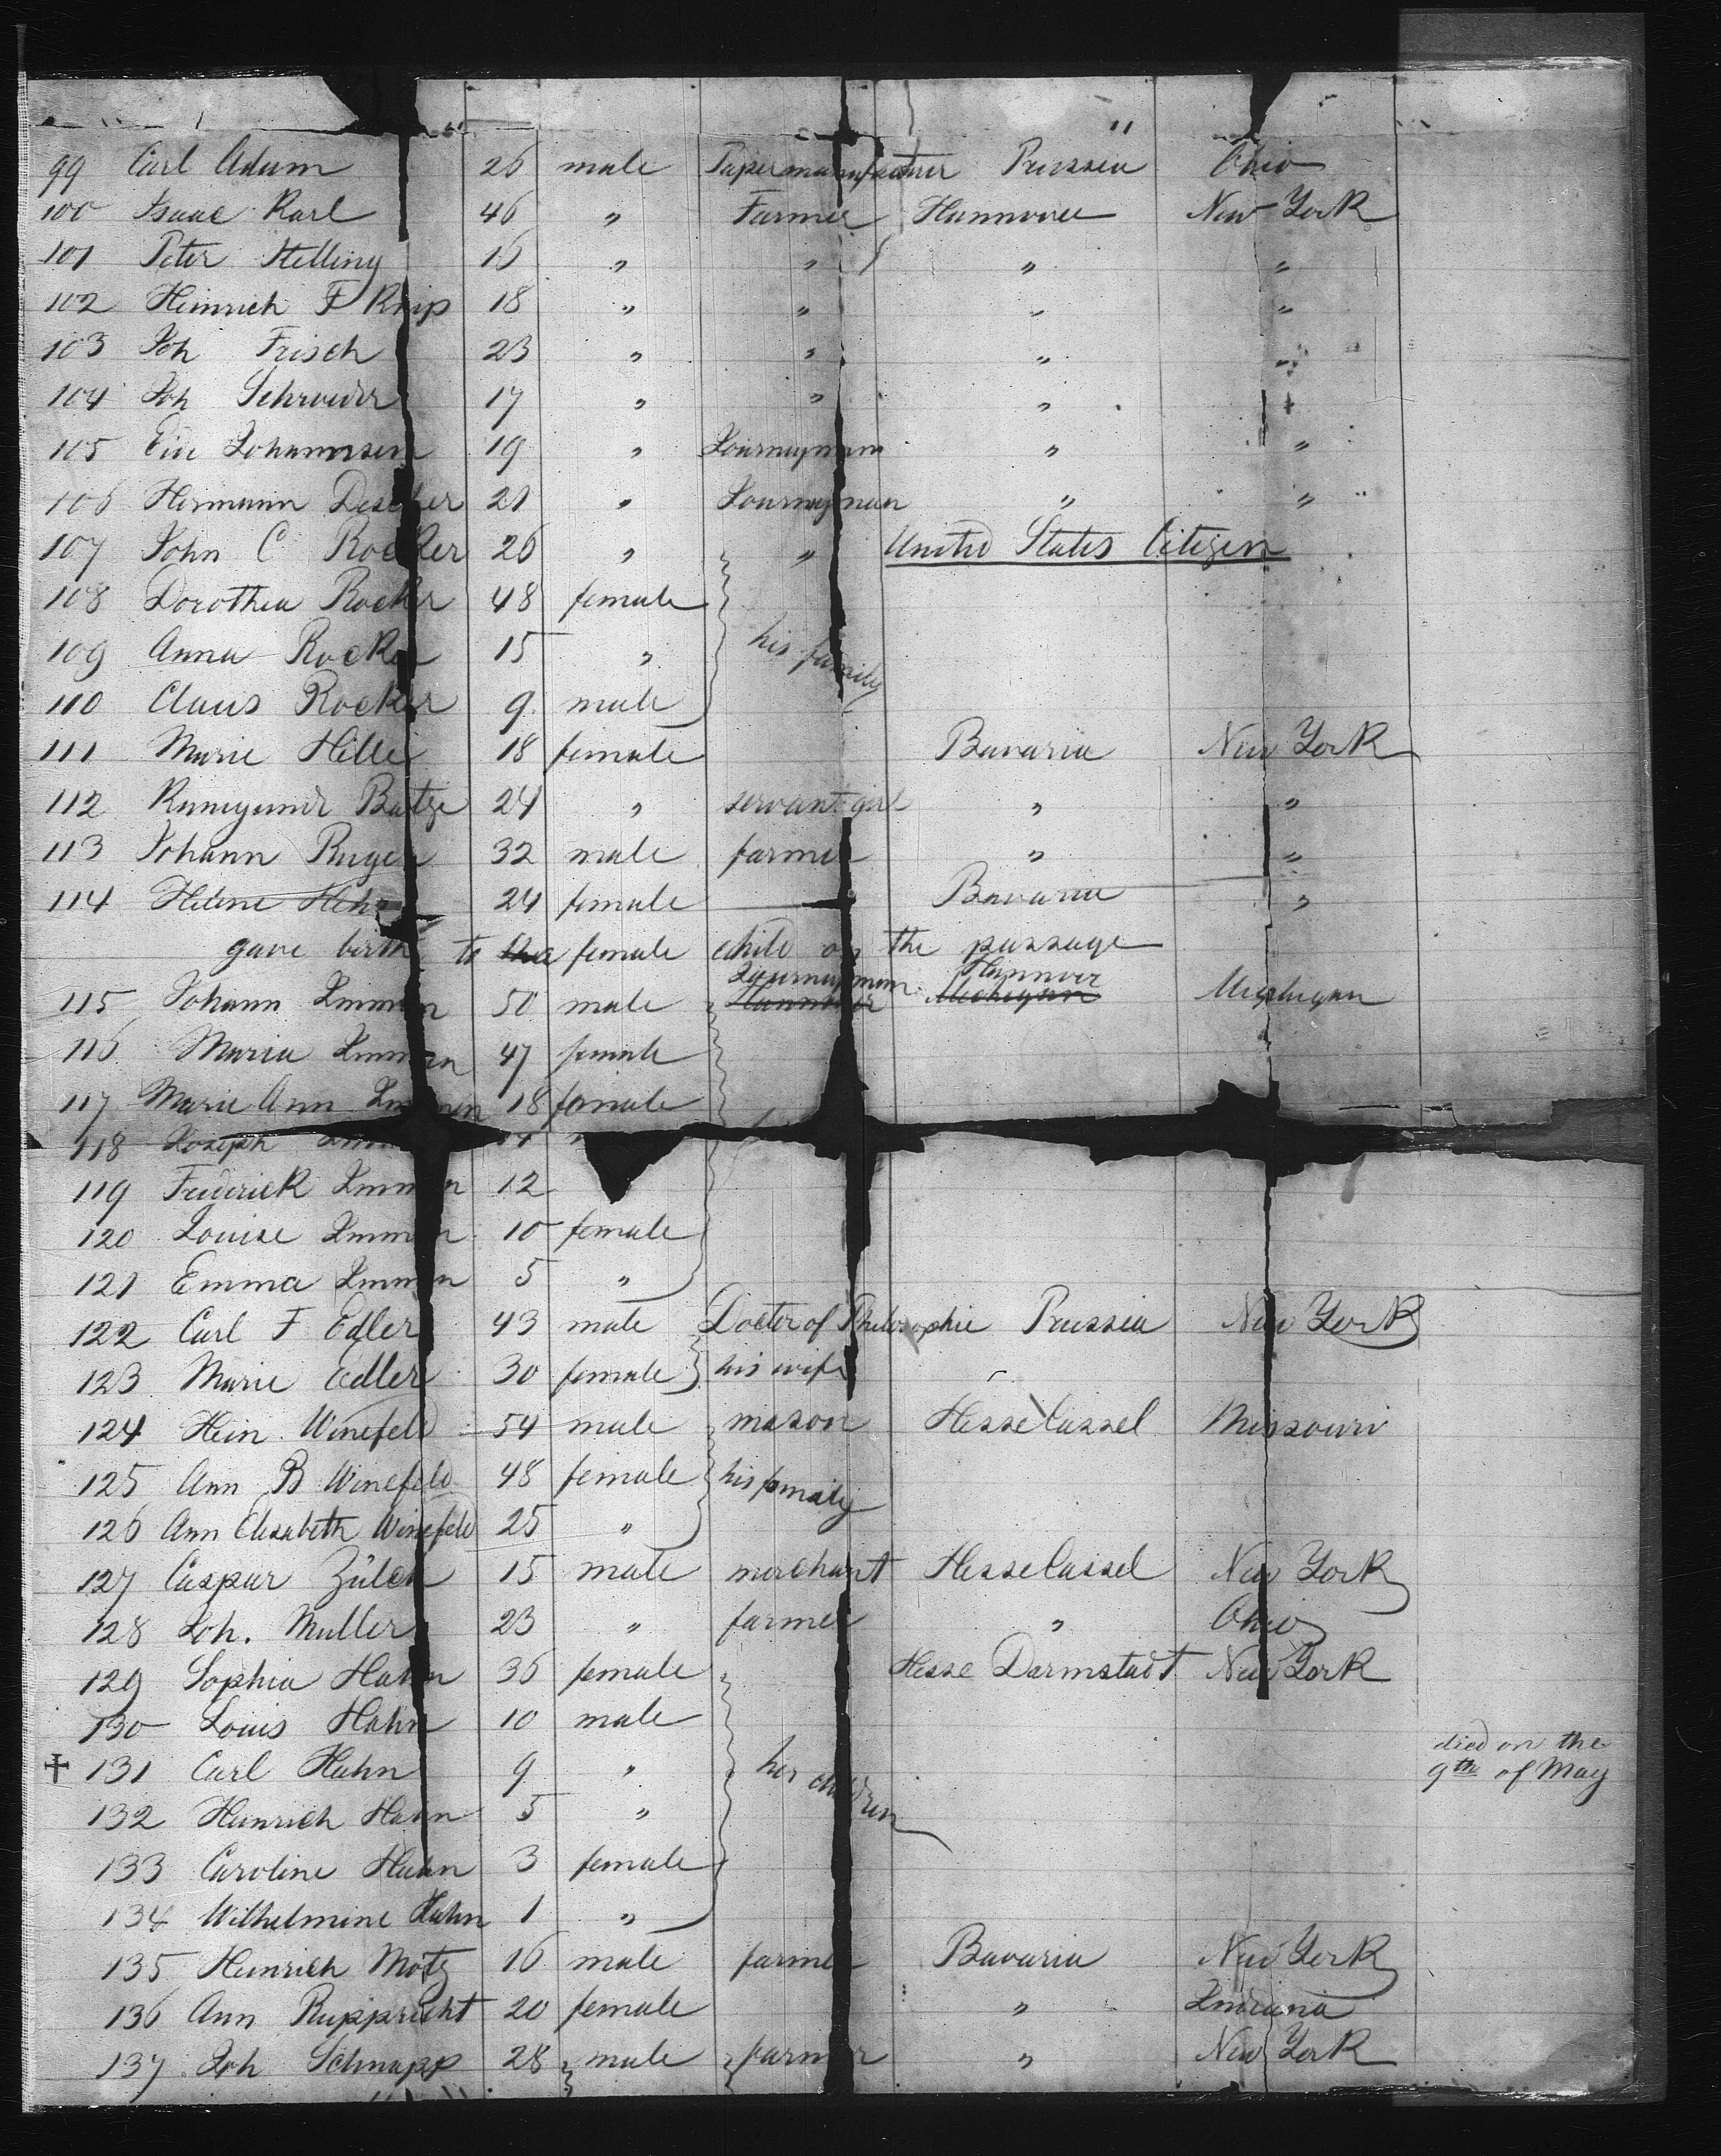 "
99 Carl Adam 26 male Papermanufacturer Prussia Ohio
100 Isaac Karl 46 " Farmer Hannover New York
101 Peter Stelling 16 " " " "
102 Heinrich F Knip 18 " " " "
103 Joh Frisch 23 " " " "
104 Joh Schroeder 17 " " " "
105 Johannsen 19 " Journeyman " "
106 Hermann 21 " Journeyman " "
107 John C Rocker 26 " " United States Citizen
108 Dorothea Rocker 48 female
109 Anna Rocker 15 " his family
110 Claus Rocker 9 male
111 Marie Hille 18 female Bavaria New York
112 Kunegunde Batze 24 " servant girl " "
113 Johann Ruger 32 male farmer " "
114 Helene 24 female Bavaria "
gave birth to the female child on the passage
Journeyman Hannover
115 Johann Immen 50 male Hannover Michigan Michigan
116 Maria Immen 47 female
117 Marie Ann Immen 18 female
118 Joseph
119 Frederick Immen 12
120 Louise Immen 10 female
121 Emma Immen 5 "
122 Carl F Edler 43 male Doctor of Philosophie Prussia New York
123 Marie Edler 30 female his wife
124 Hein. Winefeld 54 male mason Hesse Cassel Missouri
125 Ann B Winefeld 48 female his family
126 Ann Elisabeth Winefeld 25 "
127 Caspar Zülch 15 male merchant Hesse Cassel New York
128 Joh. Muller 23 " farmer " Ohio
129 Sophia Hahn 36 female Hesse Darmstadt New York
130 Louis Hahn 10 male
died on the
131 Carl Hahn 9 " her children 9th of May
132 Heinrich Hahn 5 "
133 Caroline Hahn 3 female
134 Wilhelmine Hahn 1 "
135 Heinrich Motz 16 male farmer Bavaria New York
136 Ann Rupprecht 20 female " Indiana
137 Joh Schnapp 28 male farmer " New York